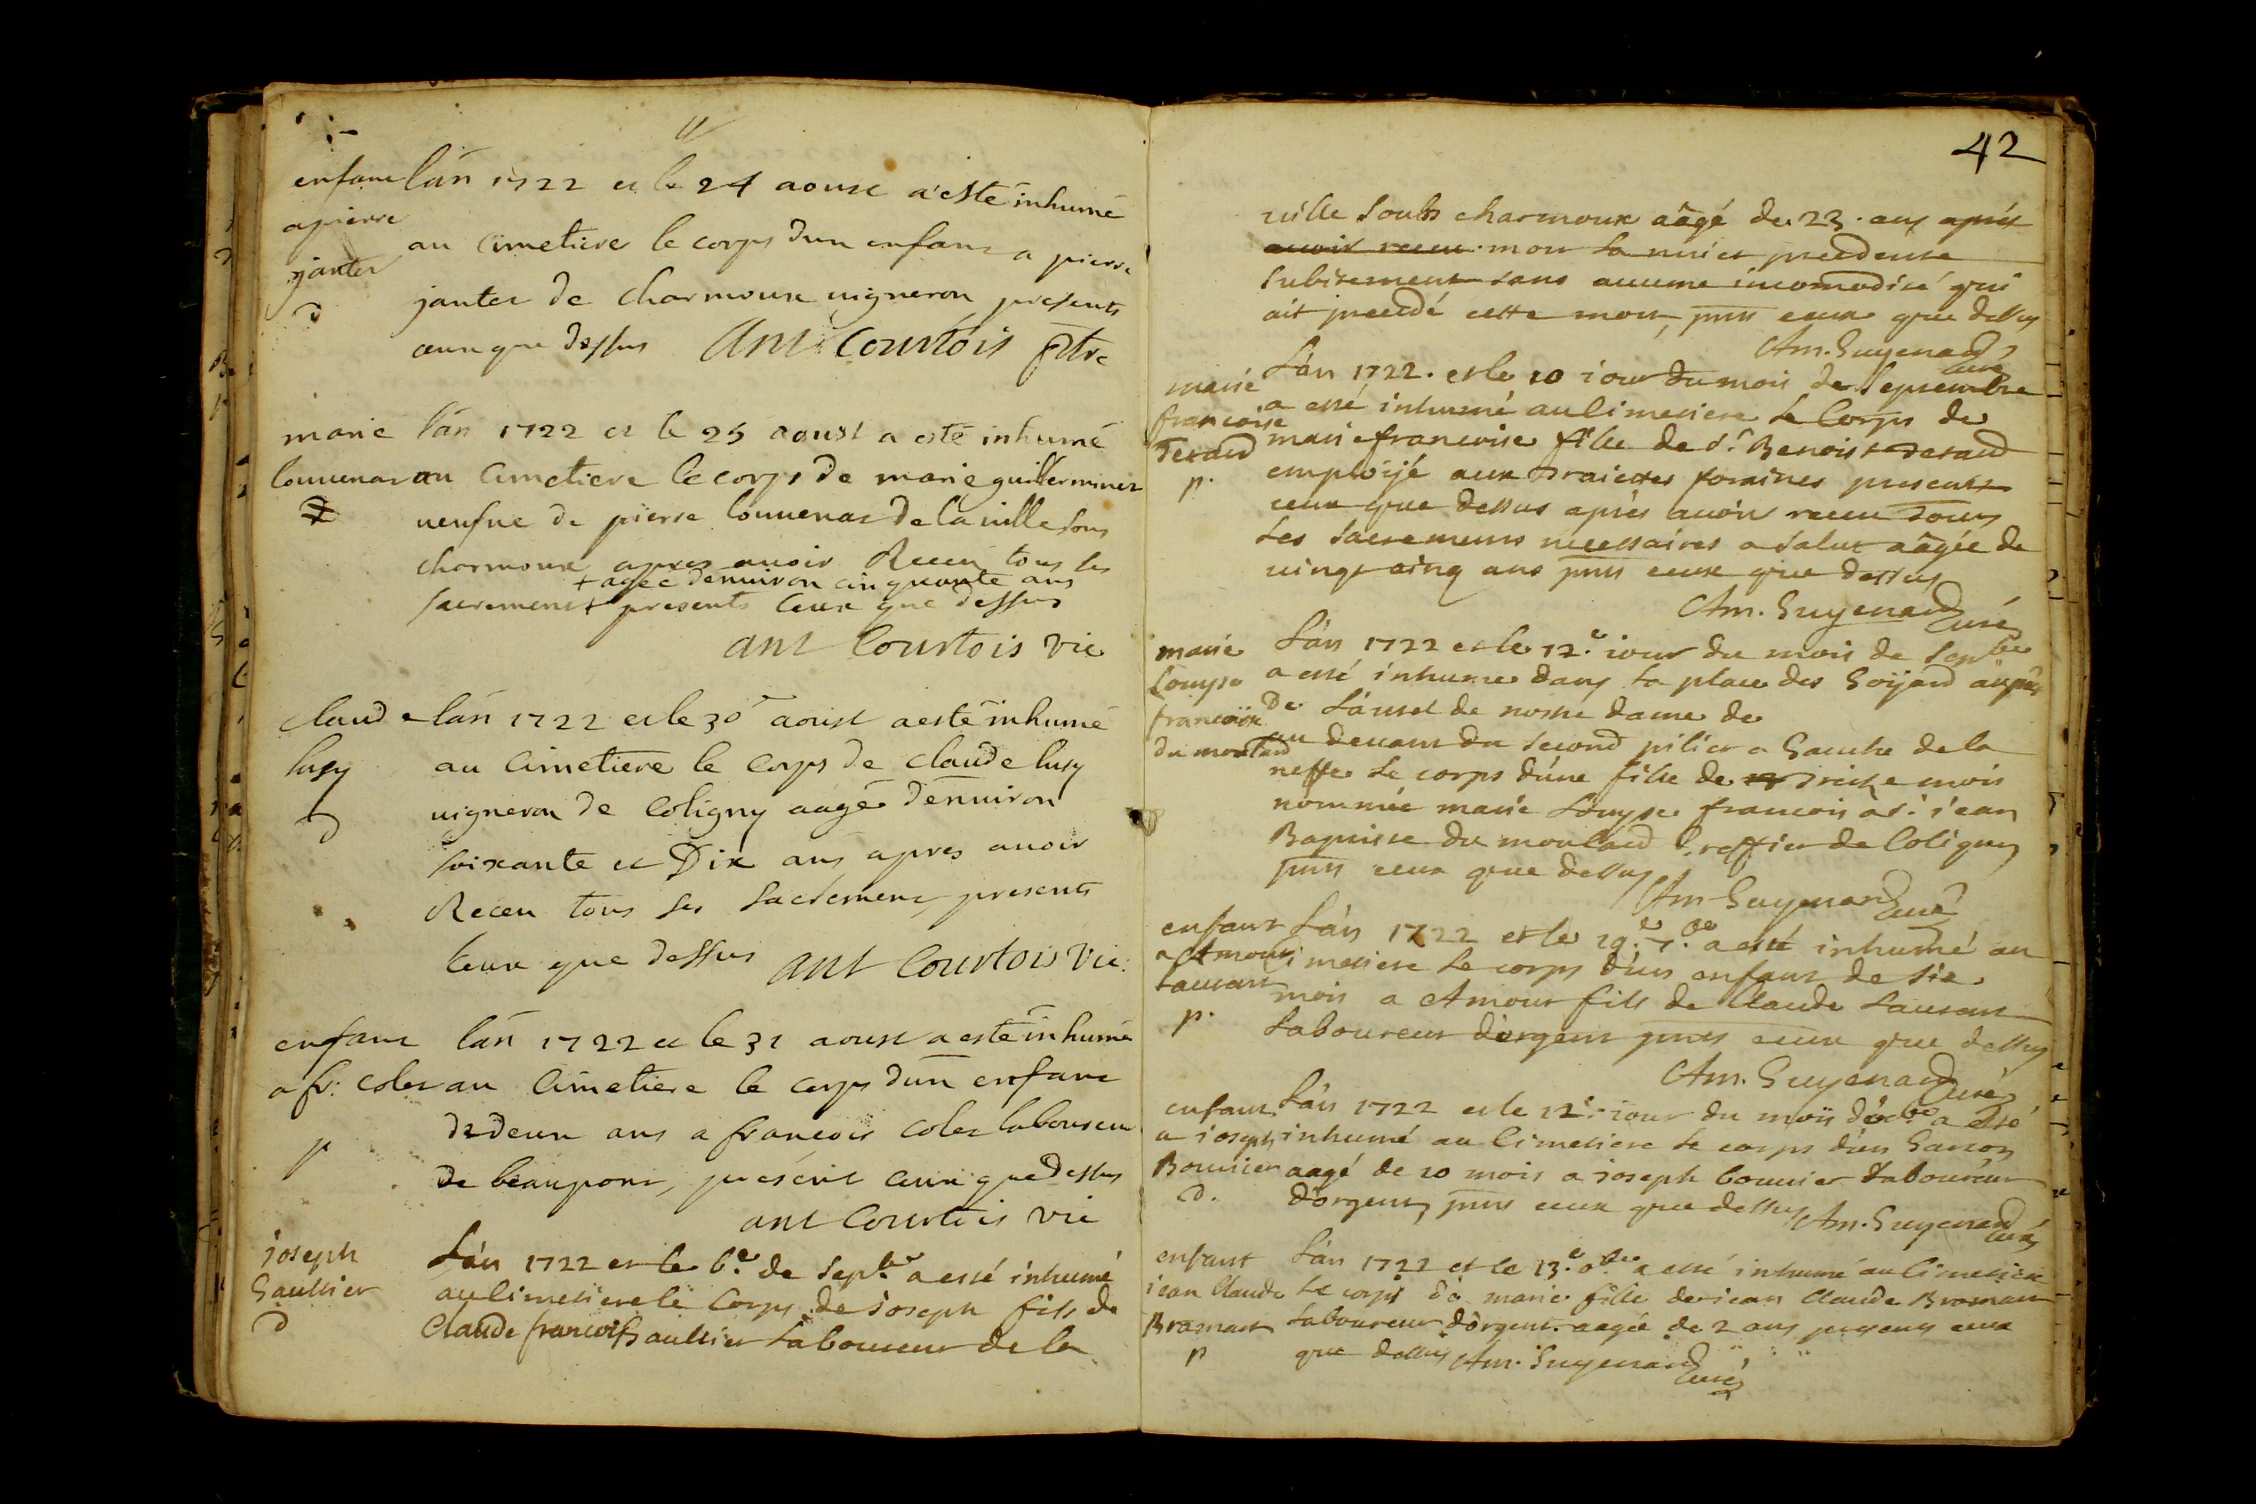 enfant
a pierre
jantet
D
lán 1722 et le 24 aoust a esté inhumé
au cimetiere le corps dun enfant a pierre
jantet de charmoux uigneron presents
ceux que dessus Ant Courtois ptre
marie
louuenat
lán 1722 et le 25 aoust a esté inhumé
au cimetiere le corps de marie guillerminet
ueufue de pierre louuenat de la uille sous
charmoux apres auoir Receu tous les
+ agée denuiron cinquante ans
sacrement + presents ceux que dessus
ant Courtois vic
claude
lusy
D
lán 1722 et le 30 aoust a esté inhumé
au cimetiere le corps de claude lusy
uigneron de Coligny aagé dénuiron
soixante et Dix ans apres auoir
Receu tous ses sacrement presents
ceux que dessus ant Courtois Vic.
enfant
a fr: colet
p
lán 1722 et le 31 aoust a esté inhumé
au cimetiere le corps dun enfant
de deux ans a francois colet laboureur
de beaupont, présent ceux que dessus
ant Courtois vic
joseph
Gaultier
D
L'án 1722 et le 6.e de Sepbre a esté inhumé
au Cimetiere le Corps de joseph fils de
Claude francois Gaultier Laboureur de la
42
uille soubs charmoux aâgé de 23. ans aprés
auoir receu mort la nuict precedente
subitement sans aucune incomodité qui
ait precedé cette mort, pnts ceux que dessus
Am. Guyenard
curé
marie
francoise
Deraud
p.
L'án 1722. et le 10 iour du mois de Septembre
a esté inhumé au Cimetiere le Corps de
marie francoise fille de Sr Benoist Deraud
emploijé aux traictes foraines presents
ceux que dessus aprés auoir receu tous
Les Sacrements necessaires a salut aâgée de
uingt cinq ans pnts ceux que dessus
Am. Guyenard curé
marie
Louyse
francoise
du moulard
L'án 1722 et le 12.e iour du mois de Sepbre
a esté inhume dans la place des Goÿard auprés
De L'autel de nostre dame de
au deuant du second pilier a Gauche de la
neffe le corps d'une fille de treize mois
nommée marie Louyse francois a sr. iean
Baptiste du moulard Greffier de Coligny
pnts ceux que dessus
Am Guyenard curé
enfant
a Amour
Lausant
p.
L'án 1722 et le 19.e 7.bre a esté inhumé au
Cimetiere le corps d'un enfant de six
mois a Amour fils de Claude Lausant
Laboureur dorgent pnts ceux que dessus
Am. Guyenard curé
enfant
a ioseph
Bouuier
D.
L'án 1722 et le 12e. iour du mois d'ocbre a esté
inhumé au Cimetiere le corps d'un Garcon
aagé de 10 mois a ioseph bouuier Laboureur
D'orgent, pnts ceux que dessus Am. Guyenard
curé
enfant
iean Claude
Bramant
p
L'án 1722 et le 13.e 8.bre a esté inhumé au Cimetiere
Le corps de marie fille de iean Claude Bramant
Laboureur dorgent aagée de 2 ans presents ceux
que dessus Am. Guyenard
curé